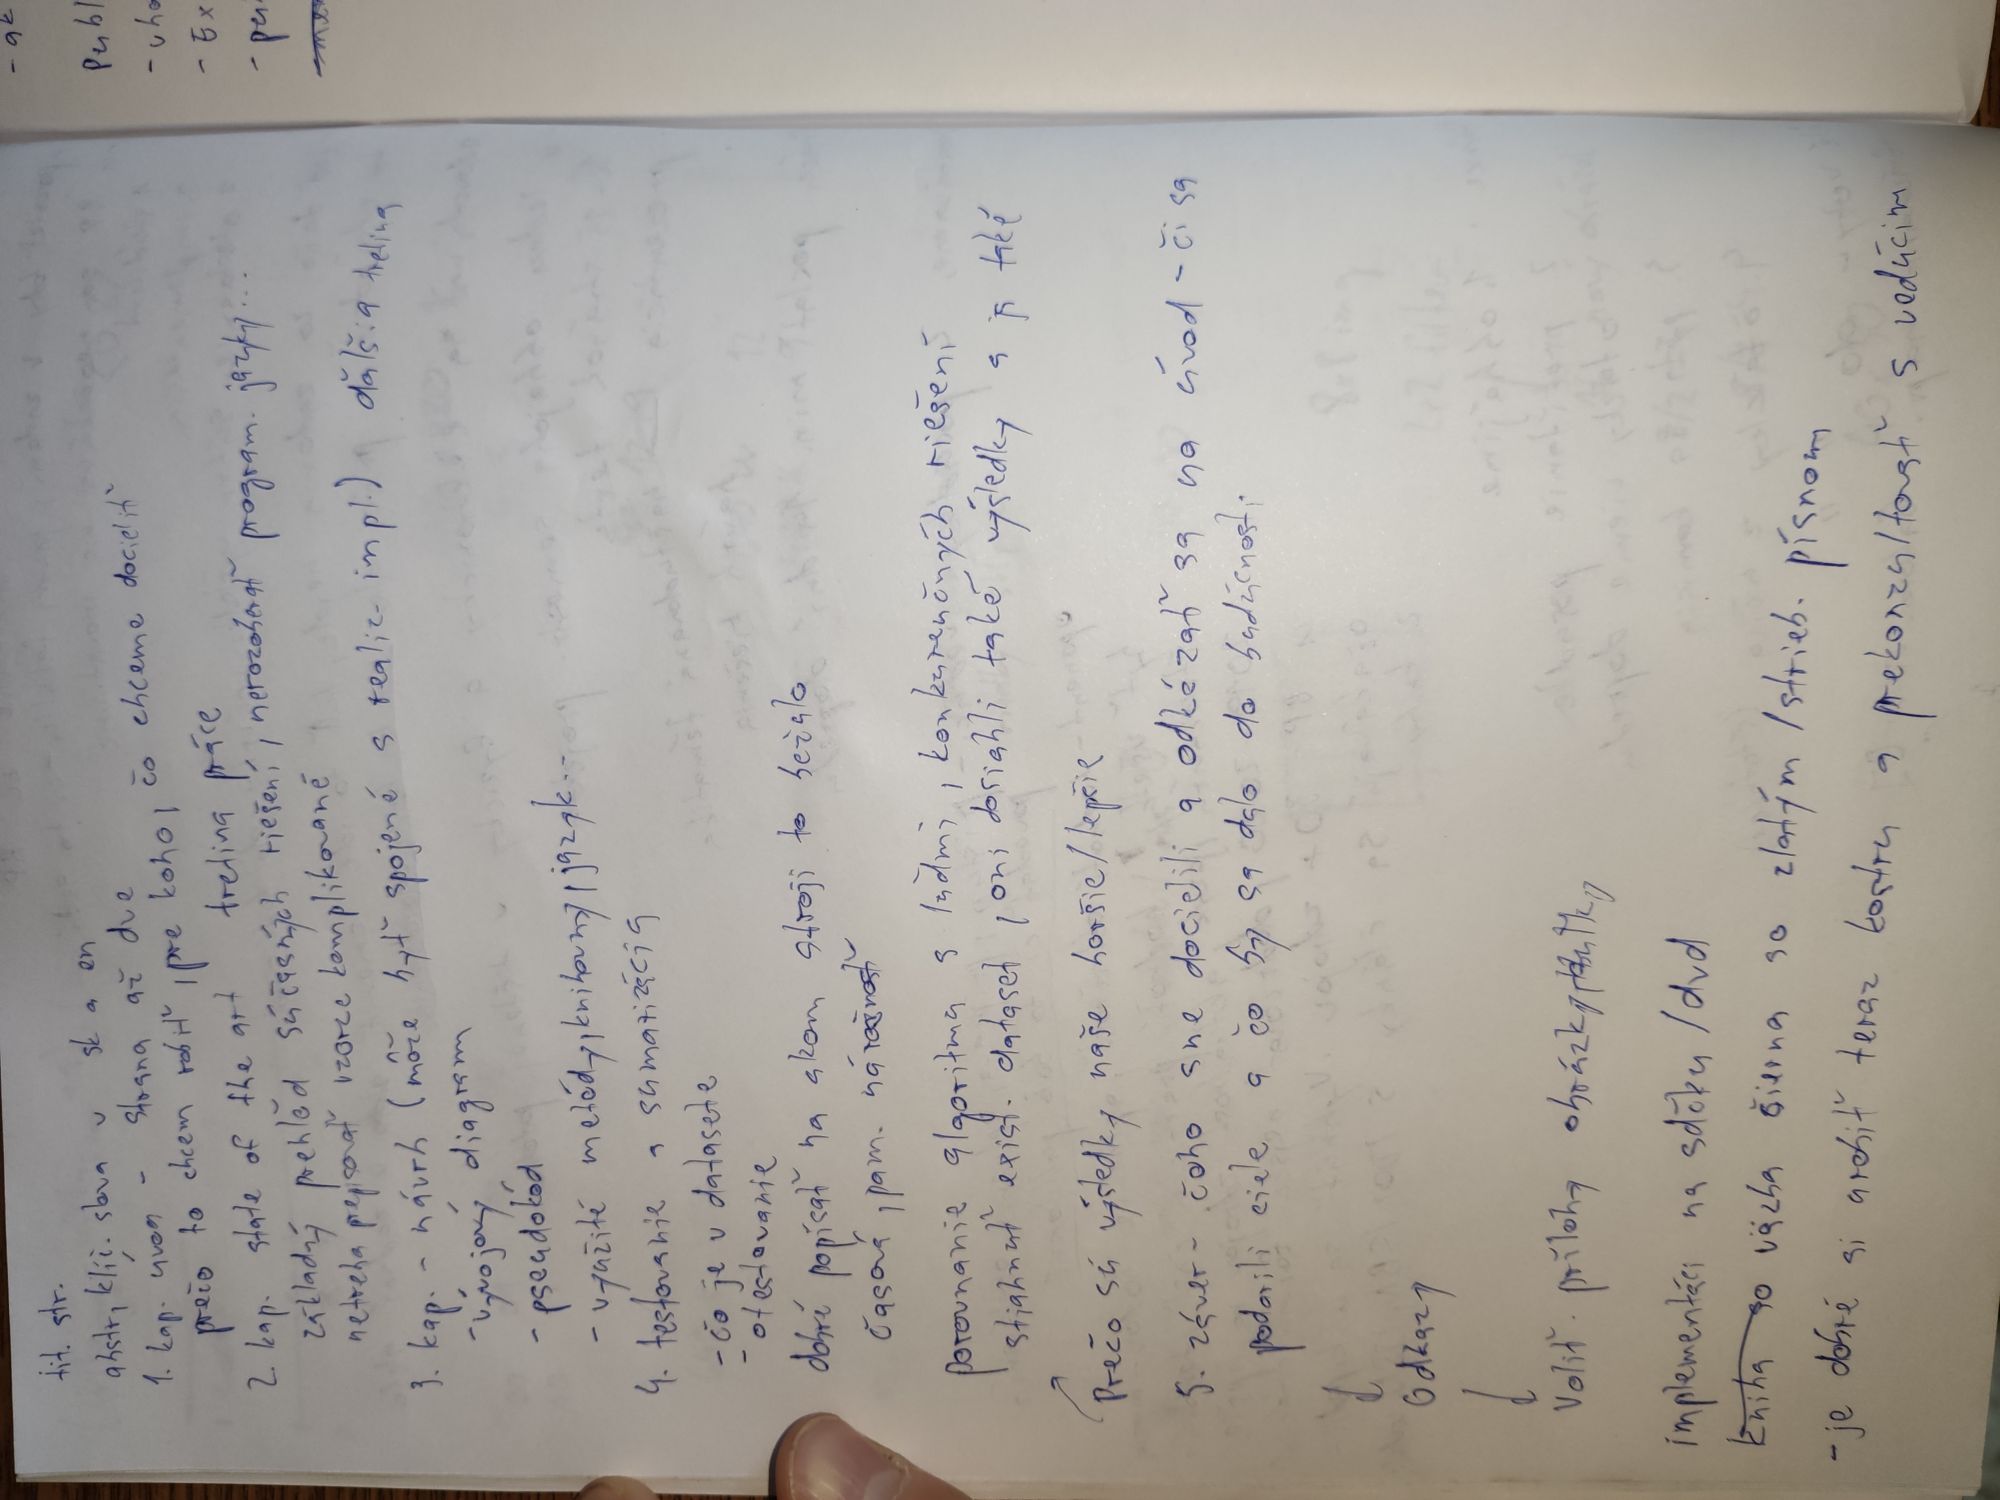 tit. str.
abstr., klíč. slová v sk a en
1. kap. úvod - strana až dve
prečo to chcem robiť, pre koho, čo chceme docieliť
2. kap. state of the art tretina práce
základný prehľad súčasných riešení, nerozoberať program. jazyky...
netreba prepisovať vzorce komplikované
3. kap. - návrh (môže byť spojené s realiz. impl.) ďalšia tretina
- vývojový diagram
- pseudokód
- využité metódy, knihovny, jazyk...
4. testovanie a sumarizácia
- čo je v datasete
- otestovanie
dobré popísať na akom stroji to bežalo
časová, pam. náročnosť
porovnanie algoritmu s ľuďmi, konkurenčných riešení
stiahnuť exist. dataset, oni dosiahli také výsledky a ja také
Prečo sú výsledky naše horšie/lepšie
5. záver - čoho sme docielili a odkázať sa na úvod - či sa
podarili ciele a čo by sa dalo do budúcnosti
Odkazy
Voliť. prílohy obrázky,
implementáci na sdčku/dvd
kniha so väzba čierna so zlatým/strieb. písmom
- je dobré si urobiť teraz kostru a prekonzultovať s vedúcim
- ak
Publ
- vho
- Ex